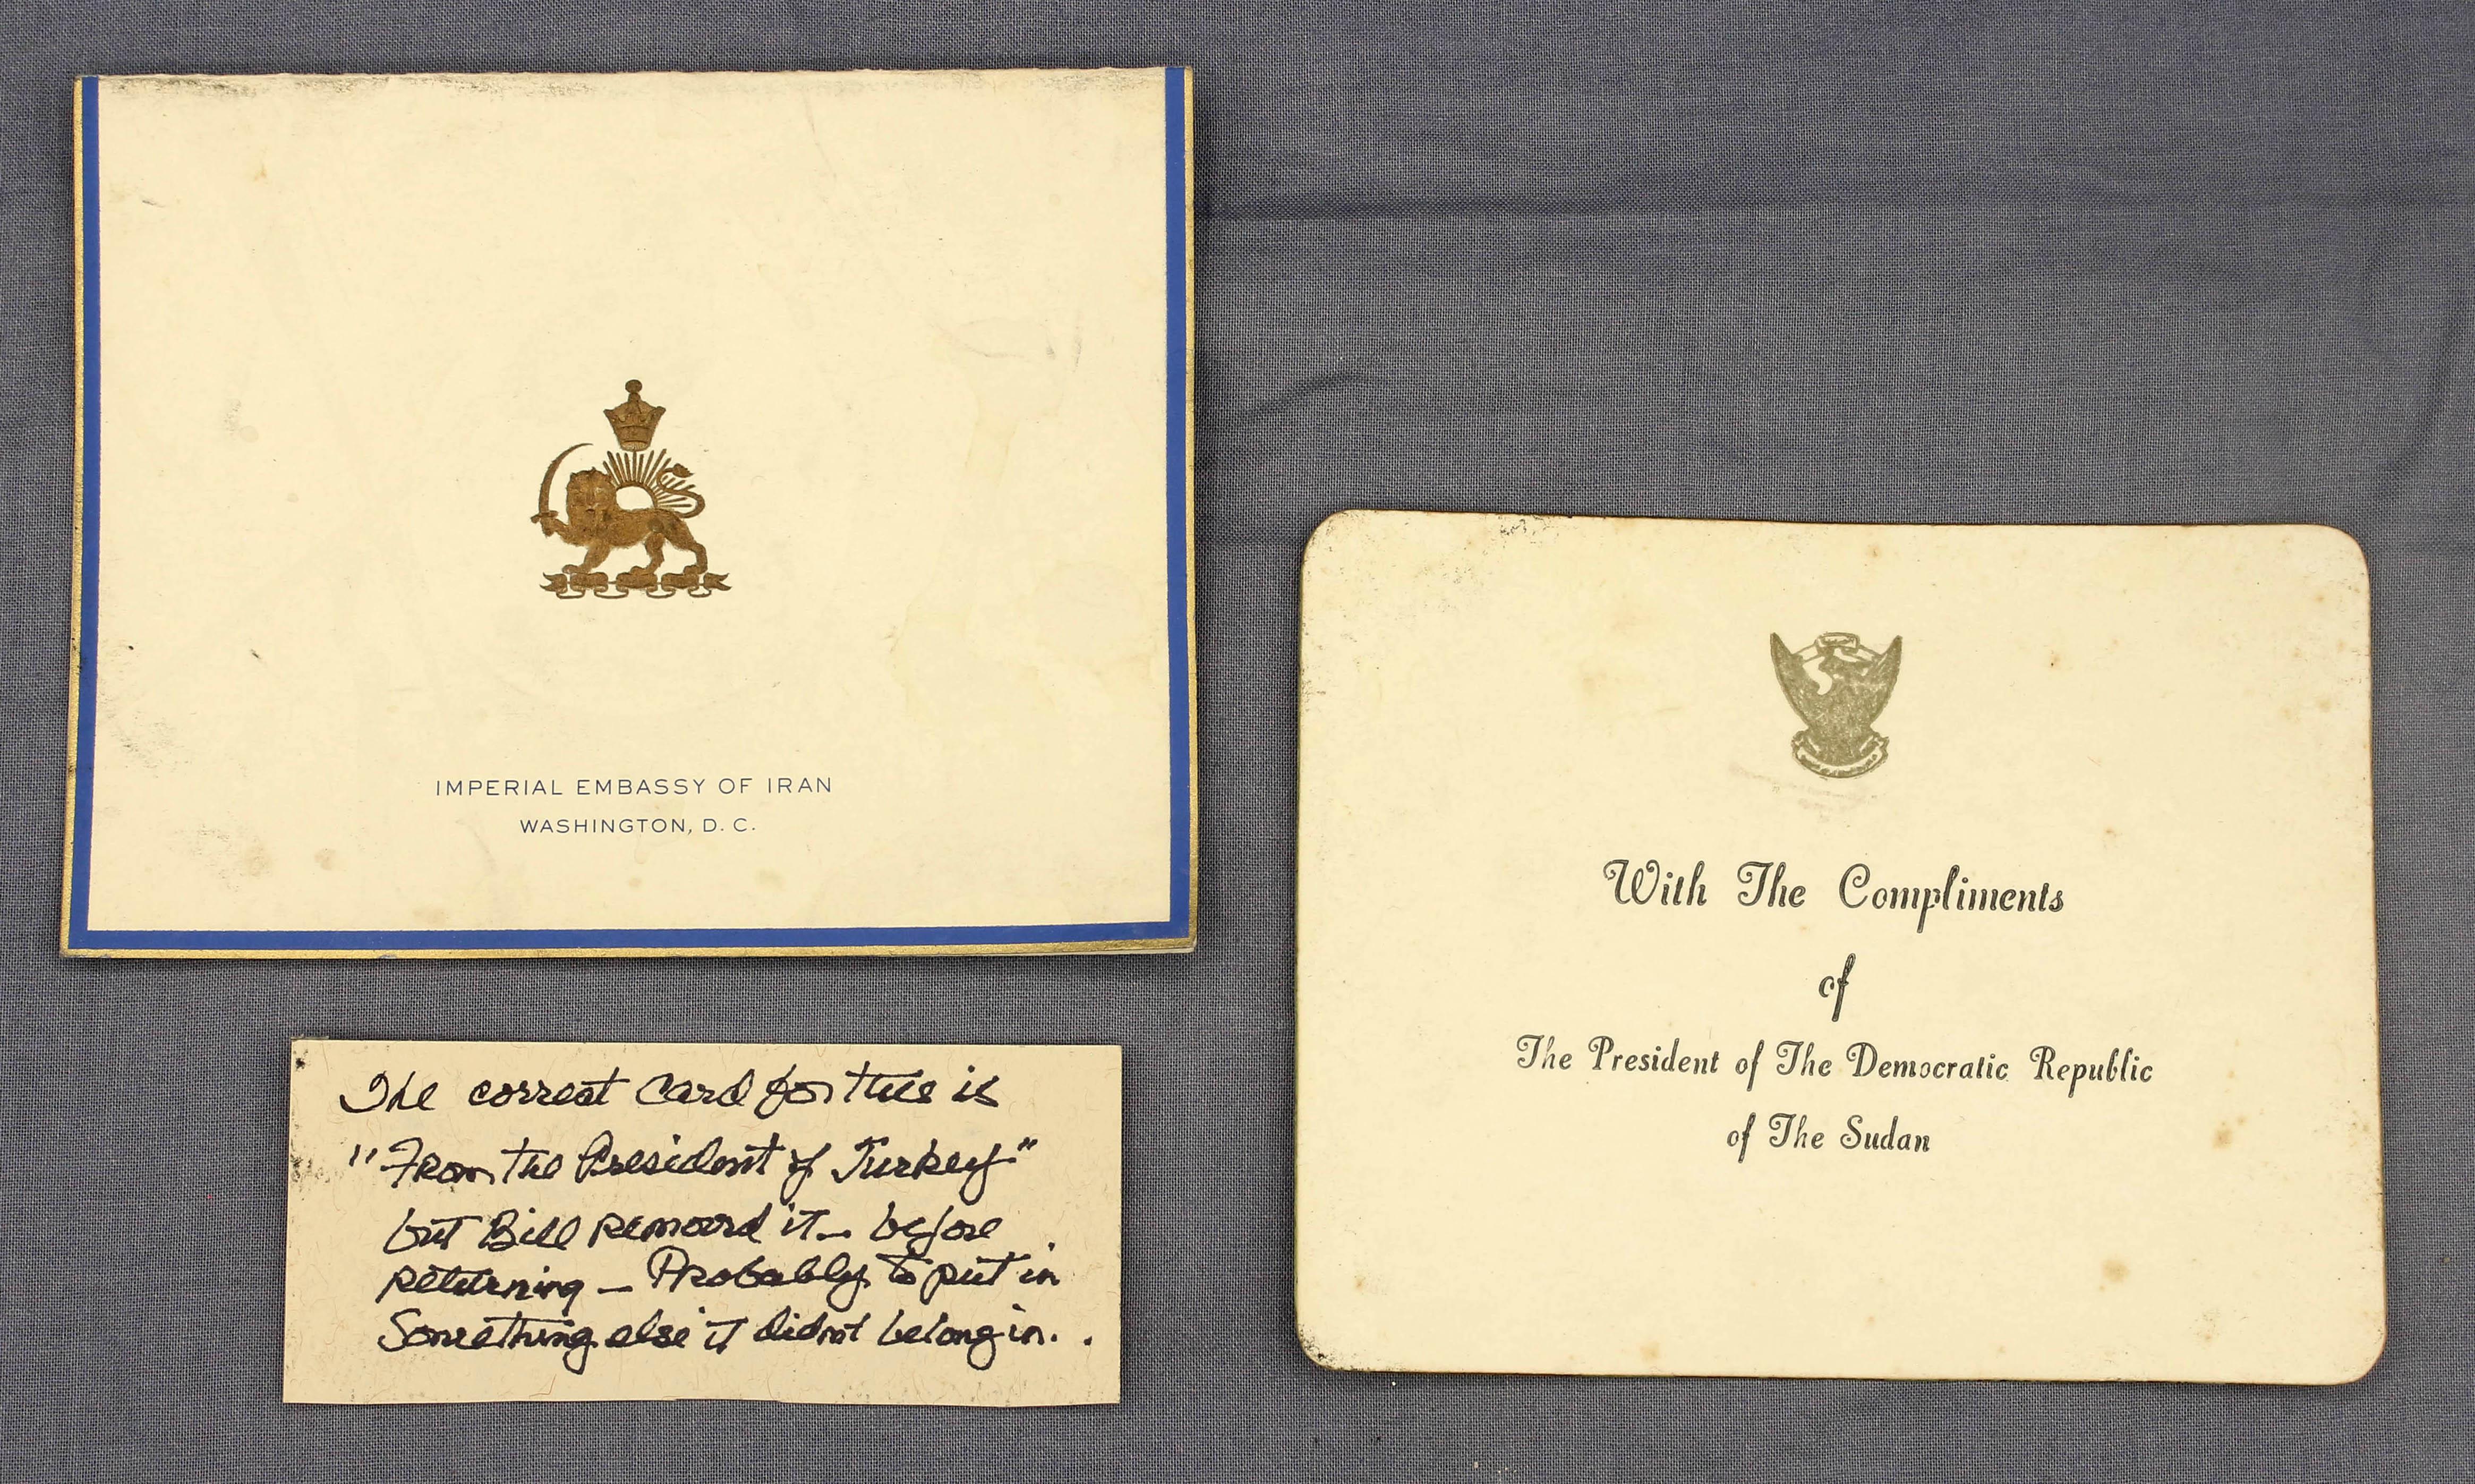 IMPERIAL EMBASSY OF IRAN
WASHINGTON, D. C.
With The Compliments
of
The President of The Democratic Republic
of The Sudan
The correct card for this is
"From the President of Turkey"
but Bill removed it - before
returning - Probably to put in
Something else it didnt belong in. .